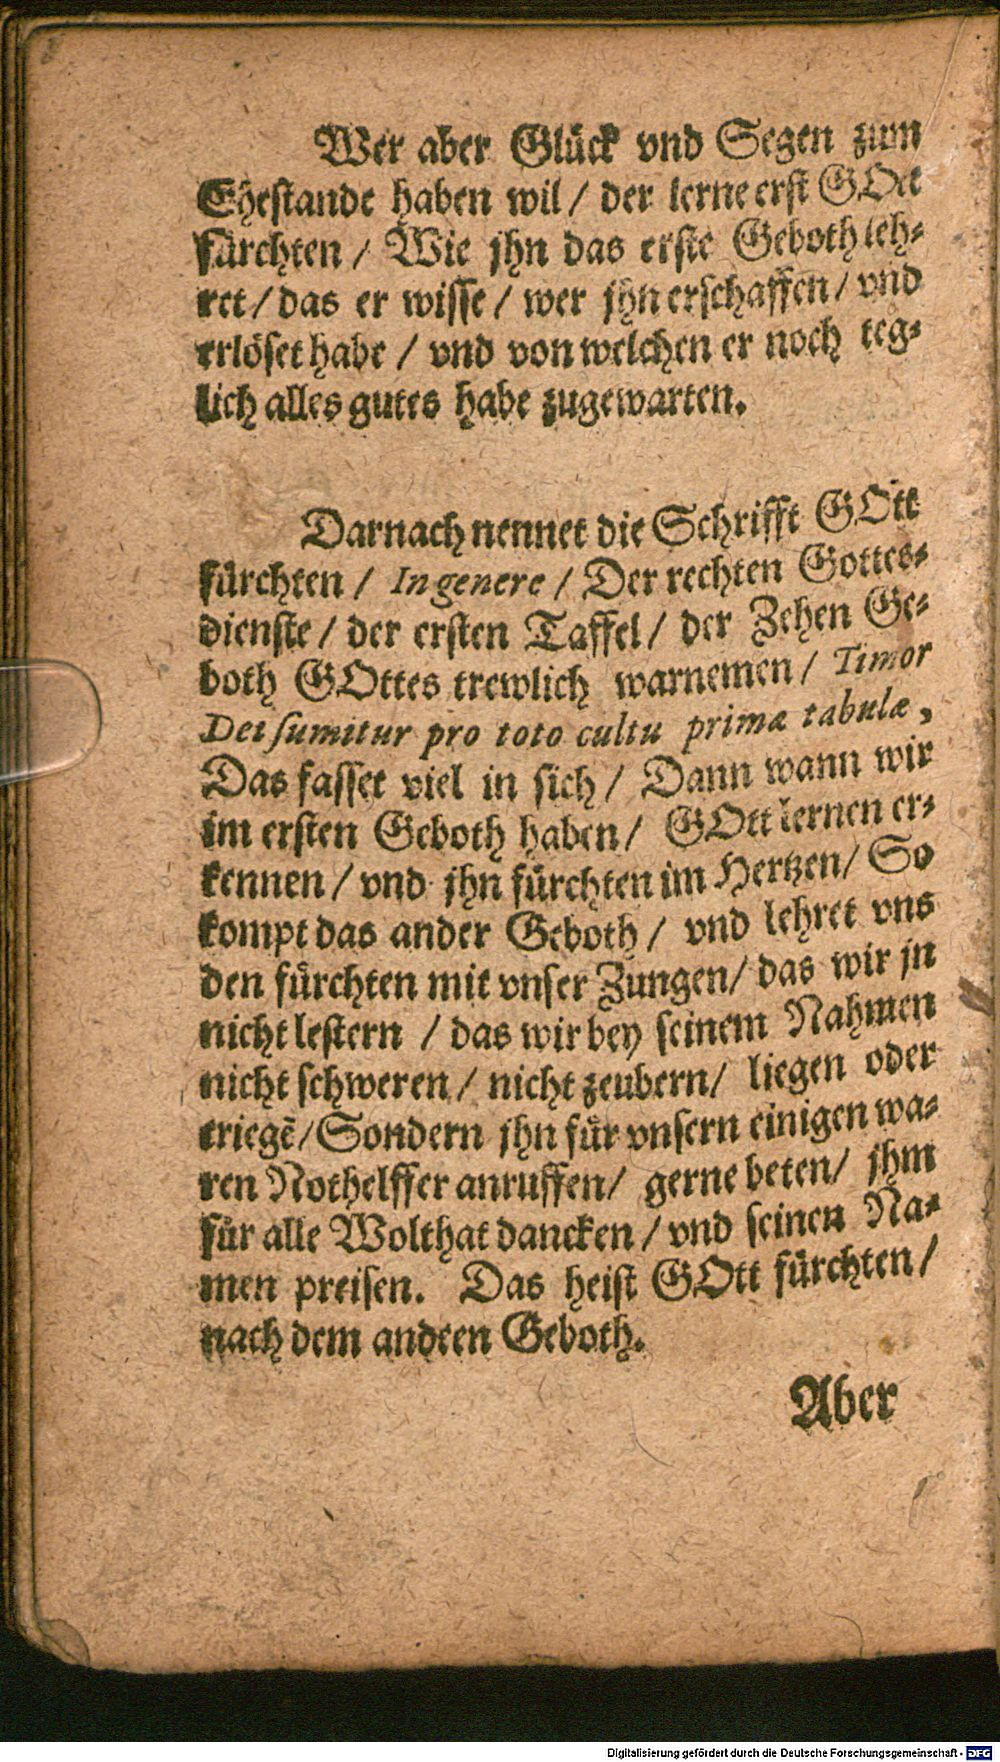 Wer aber Glück vnd Segen zum
Ehestande haben wil / der lerne erst GOtt
fürchten / Wie jhn das erste Geboth leh-
ret / das er wisse / wer jhn erschaffen / vnd
erlöset habe / vnd von welchen er noch teg-
lich alles gutes habe zugewarten.
Darnach nennet die Schrifft GOtt
fürchten / In genere / Der rechten Gottes-
dienste / der ersten Taffel / der Zehen Ge-
both GOttes trewlich warnemen / Timor
Dei sumitur pro toto cultu primæ tabulæ,
Das fasset viel in sich / Dann wann wir
im ersten Geboth haben / GOtt lernen er-
kennen / vnd jhn fürchten im Hertzen / So
kompt das ander Geboth / vnd lehret vns
den fürchten mit vnser Zungen / das wir jn
nicht lestern / das wir bey seinem Nahmen
nicht schweren / nicht zeubern / liegen oder
triegẽ / Sondern jhn für vnsern einigen wa-
ren Nothelffer anruffen / gerne beten / jhm
für alle Wolthat dancken / vnd seinen Na-
men preisen. Das heist GOtt fürchten /
nach dem andeen Geboth.
Aber
Digitalisierung gefördert durch die Deutsche Forschungsgemeinschaft - DFG